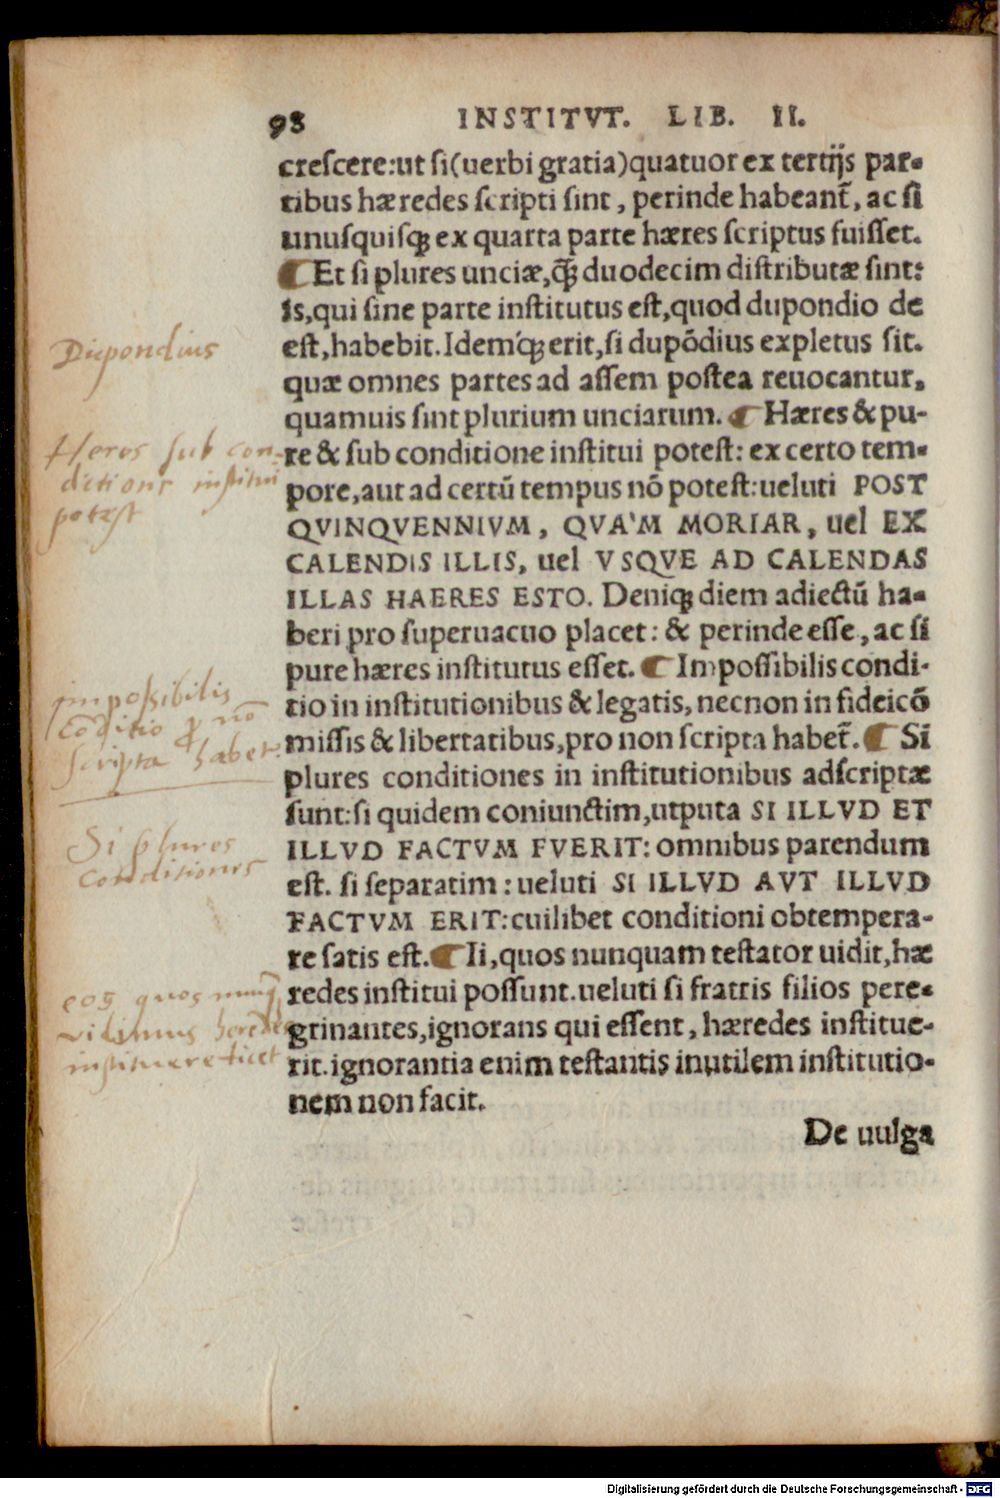 98 INSTITVT. LIB. II.
crescere:ut si(uerbi gratia)quatuor ex tertijs par-
tibus hæredes scripti sint, perinde habeant̃, ac si
unusquisq; ex quarta parte hæres scriptus fuisset.
¶ Et si plures unciæ, q̃; duodecim distributæ sint:
is,qui sine parte institutus est,quod dupondio de
est,habebit. Idemq́; erit,si dupõdius expletus sit.
quæ omnes partes ad assem postea reuocantur,
quamuis sint plurium unciarum. ¶ Hæres & pu-
re & sub conditione institui potest: ex certo tem-
pore,aut ad certũ tempus nõ potest:ueluti POST
QVINQVENNIVM, QVA'M MORIAR, uel EX
CALENDIS ILLIS, uel VSQVE AD CALENDAS
ILLAS HAERES ESTO. Deniq; diem adiectũ ha-
beri pro superuacuo placet: & perinde esse, ac si
pure hæres institutus esset. ¶ Impossibilis condi-
tio in institutionibus & legatis, necnon in fideicõ
missis & libertatibus,pro non scripta habet̃. ¶ Si
plures conditiones in institutionibus adscriptæ
sunt:si quidem coniunctim,utputa SI ILLVD ET
ILLVD FACTVM FVERIT: omnibus parendum
est. si separatim: ueluti SI ILLVD AVT ILLVD
FACTVM ERIT:cuilibet conditioni obtempera-
re satis est. ¶ Ii,quos nunquam testator uidit,hæ
redes institui possunt.ueluti si fratris filios pere-
grinantes,ignorans qui essent, hæredes institue-
rit.ignorantia enim testantis inutilem institutio-
nem non facit.
De uulga
Dupondius
Heres sub con-
ditione institui
potest
impossibilis
cõditio ꝓ nõ
scripta habet
Si plures
conditiones
eos quos nunq̃
vidimus heredes
instituere licet
Digitalisierung gefördert durch die Deutsche Forschungsgemeinschaft - DFG